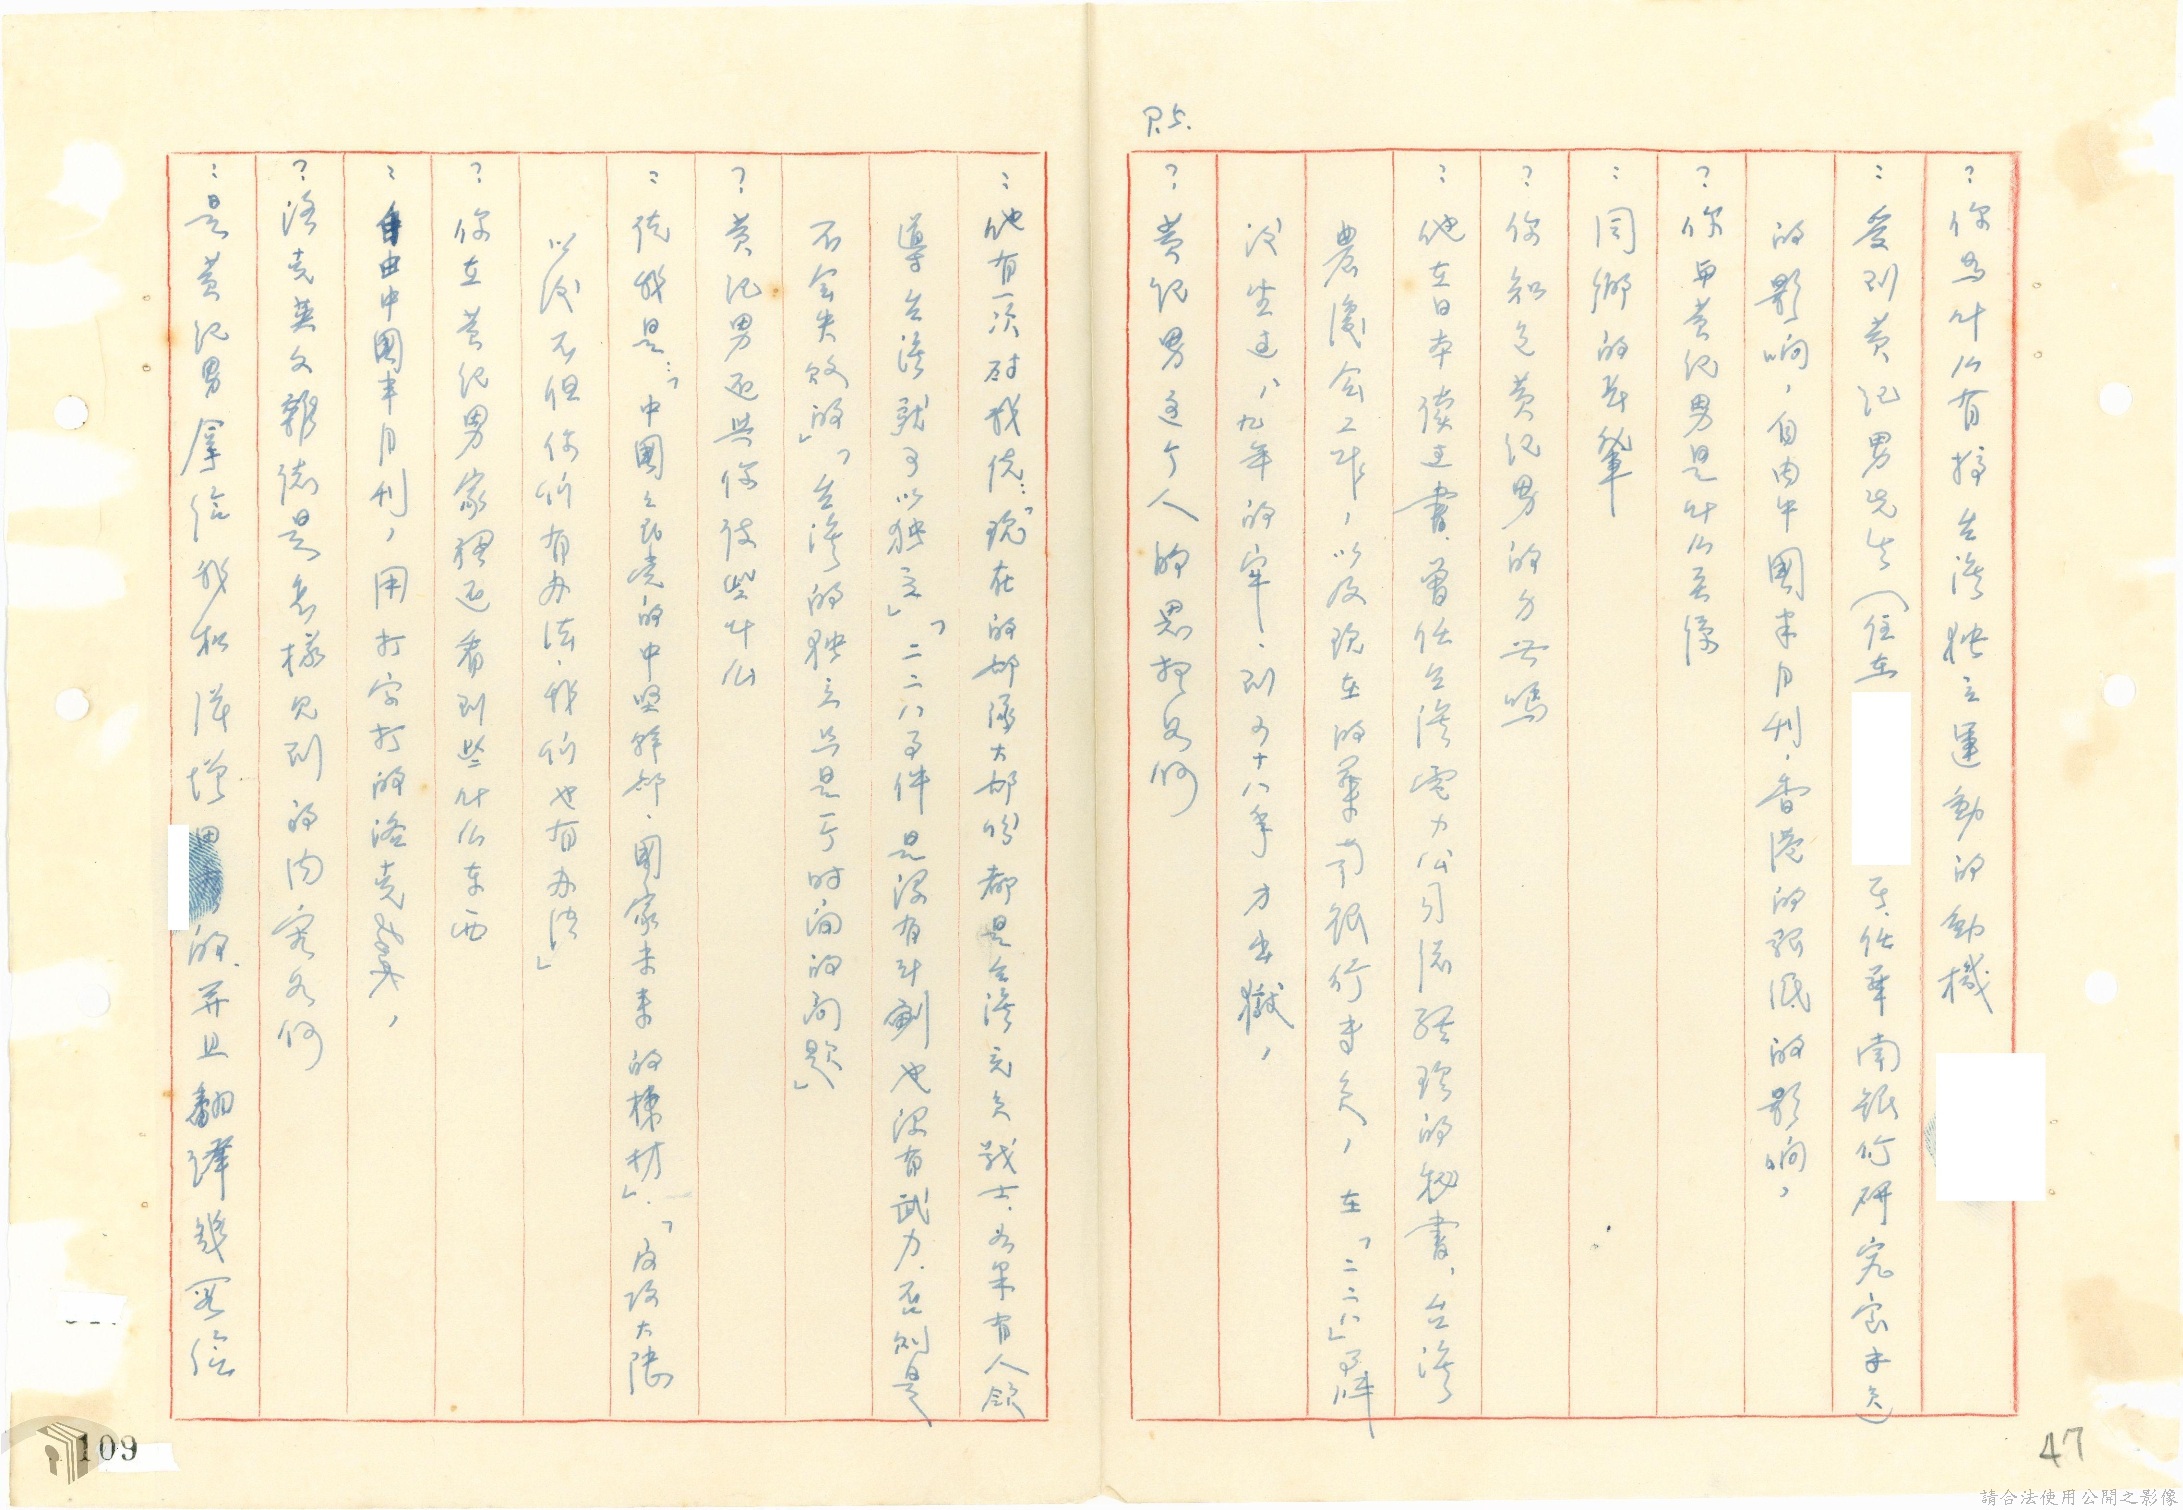 ?你為什仏有搞台湾独立運動的動機
:受到黃紀男先生(住在
現任華南銀行研究室専员)
的影响,自由中國半月刊.香港的
的影响,
?你與黃紀男是什仏关係
:同鄉的前輩
?你知道黃紀男的身世嗎
:他在日本讀过書.曾任台湾電力公司总経理的秘書,台湾
農復会工作,以及現在的華南銀行専员,在「二二八」事件
後坐过,九年的牢.到四十八年才出獄,
?黃紀男这个人的思想如何
点.
:他有一次対我說:「現在的部隊大部份都是台湾充員戰士.如果有人領
導台湾就可以独立」「二二八事件是沒有計劃也沒有武力.否則是
不会失敗的」「台湾的独立只是一个时间的问題」
?黃紀男还与你談些什仏
:說我是:「中國国民党的中坚幹部.國家未來的棟材」.「反攻大陸
以後不但你们有办法.我们也有办法」
?你在黃紀男家裡还看到些什仏东西
:自由中國半月刊,用打字打的洛克英文
?洛克英文報告是怎樣見到的内容如何
:是黃紀男拿給我和陳增田看的.并且翻譯幾段給
109
47
請合法使用公開之影像